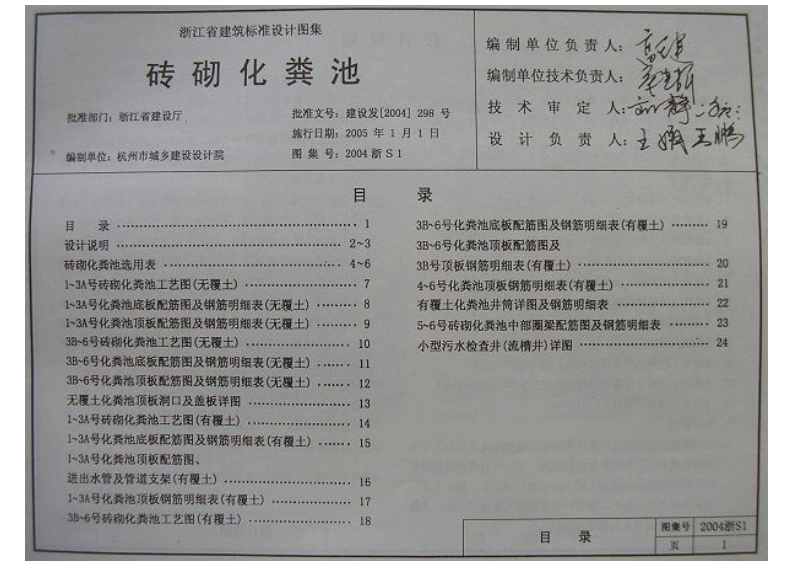 浙江省建筑标准设计图集
砖砌化粪池
批准部门：浙江省建设厅
批准文号：建设发[2004] 298 号
施行日期：2005 年 1 月 1 日
编制单位：杭州市城乡建设设计院
图 集 号：2004 浙 S 1
编制单位负责人：
编制单位技术负责人：
技 术 审 定 人：
设 计 负 责 人：
目 录
目 录 ………… 1
设计说明 ………… 2~3
砖砌化粪池选用表 ………… 4~6
1~3A号砖砌化粪池工艺图(无覆土) ………… 7
1~3A号化粪池底板配筋图及钢筋明细表(无覆土) ……… 8
1~3A号化粪池顶板配筋图及钢筋明细表(无覆土) ……… 9
3B~6号砖砌化粪池工艺图(无覆土) ………… 10
3B~6号化粪池底板配筋图及钢筋明细表(无覆土) …… 11
3B~6号化粪池顶板配筋图及钢筋明细表(无覆土) …… 12
无覆土化粪池顶板洞口及盖板详图 ………… 13
1~3A号砖砌化粪池工艺图(有覆土) ………… 14
1~3A号化粪池底板配筋图及钢筋明细表(有覆土) …… 15
1~3A号化粪池顶板配筋图、
进出水管及管道支架(有覆土) ………… 16
1~3A号化粪池顶板钢筋明细表(有覆土) ………… 17
3B~6号砖砌化粪池工艺图(有覆土) ………… 18
3B~6号化粪池底板配筋图及钢筋明细表(有覆土) ……… 19
3B~6号化粪池顶板配筋图及
3B号顶板钢筋明细表(有覆土) ………… 20
4~6号化粪池顶板钢筋明细表(有覆土) ………… 21
有覆土化粪池井筒详图及钢筋明细表 ………… 22
5~6号砖砌化粪池中部圈梁配筋图及钢筋明细表 ……… 23
小型污水检查井(流槽井)详图 ………… 24
目 录
图集号 2004浙S1
页 1